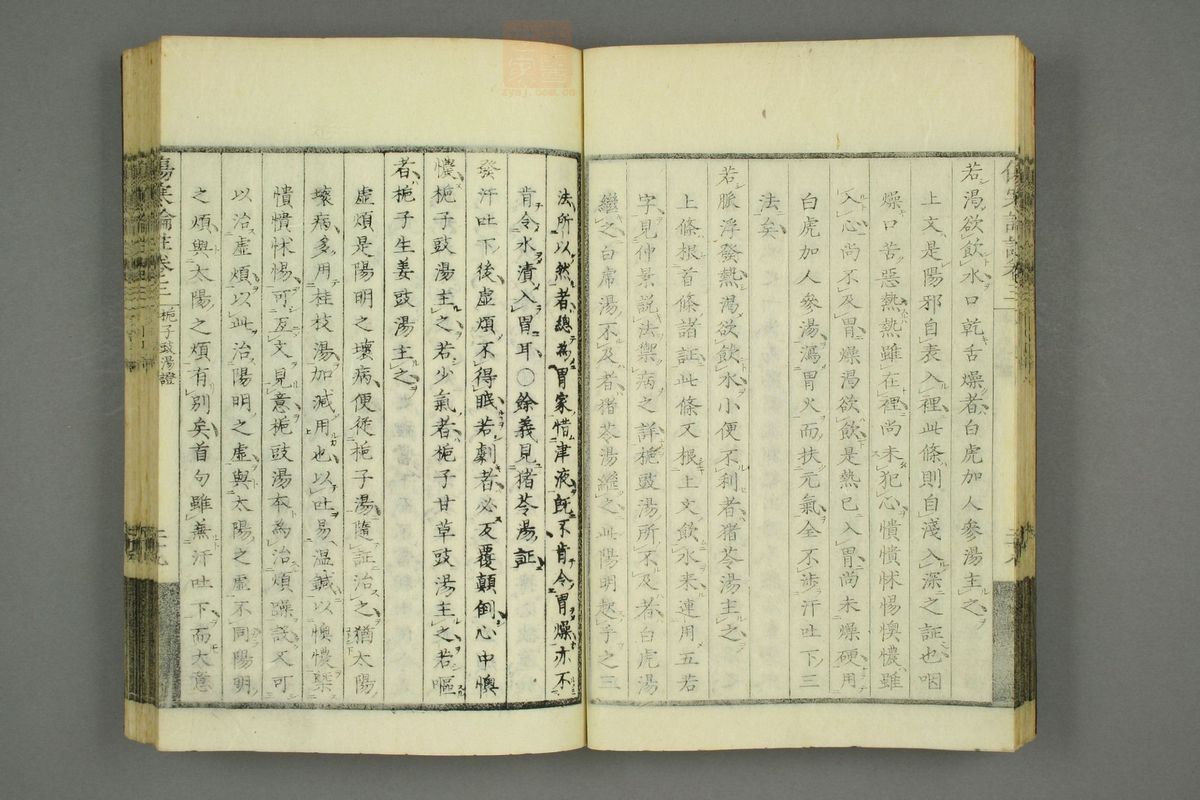 若渴欲飲水口乾舌燥者白虎加人參湯主之
上文是陽邪自表入裡此條則自淺入深之証也咽
燥口苦惡熱熱雖在裡尚未犯心憒憒怵惕懊憹雖
入心尚不及胃燥渴欲飲是熱已入胃尚未燥硬用
白虎加人參湯瀉胃火而扶元氣全不涉汗吐下三
法矣
若脈浮發熱渴欲飲水小便不利者猪苓湯主之
上條根首條諸証此條又根上文飲水来連用五若
字見仲景説法禦病之詳梔豉湯所不及者白虎湯
繼之白虎湯不及者猪苓湯繼之此陽明起手之三
法所以然者總為胃家惜津液既不肯令胃燥亦不
肯令水漬入胃耳〇餘義見猪苓湯証
發汗吐下後虛煩不得眠若劇者必反覆顛倒心中懊
憹梔子豉湯主之若少氣者梔子甘草豉湯主之若嘔
者梔子生姜豉湯主之
虛煩是陽明之壞病便從梔子湯隨証治之猶太陽
壞病多用桂枝湯加減用也以吐易温鍼以懊憹槩
憒憒怵惕可互文見意梔豉湯本為治煩躁設又可
以治虛煩以此治陽明之虛與太陽之虛不同陽明
之煩與太陽之煩有別矣首句雖兼汗吐下而大意
傷寒論註卷三
梔子豉湯證
zysj.com.cn